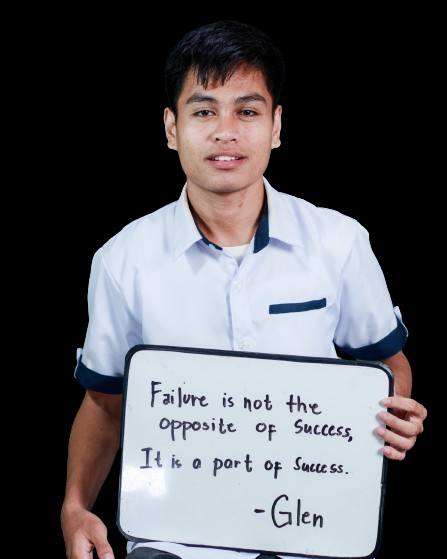 Failure is not the
opposite of success,
It is a part of success.
-Glen